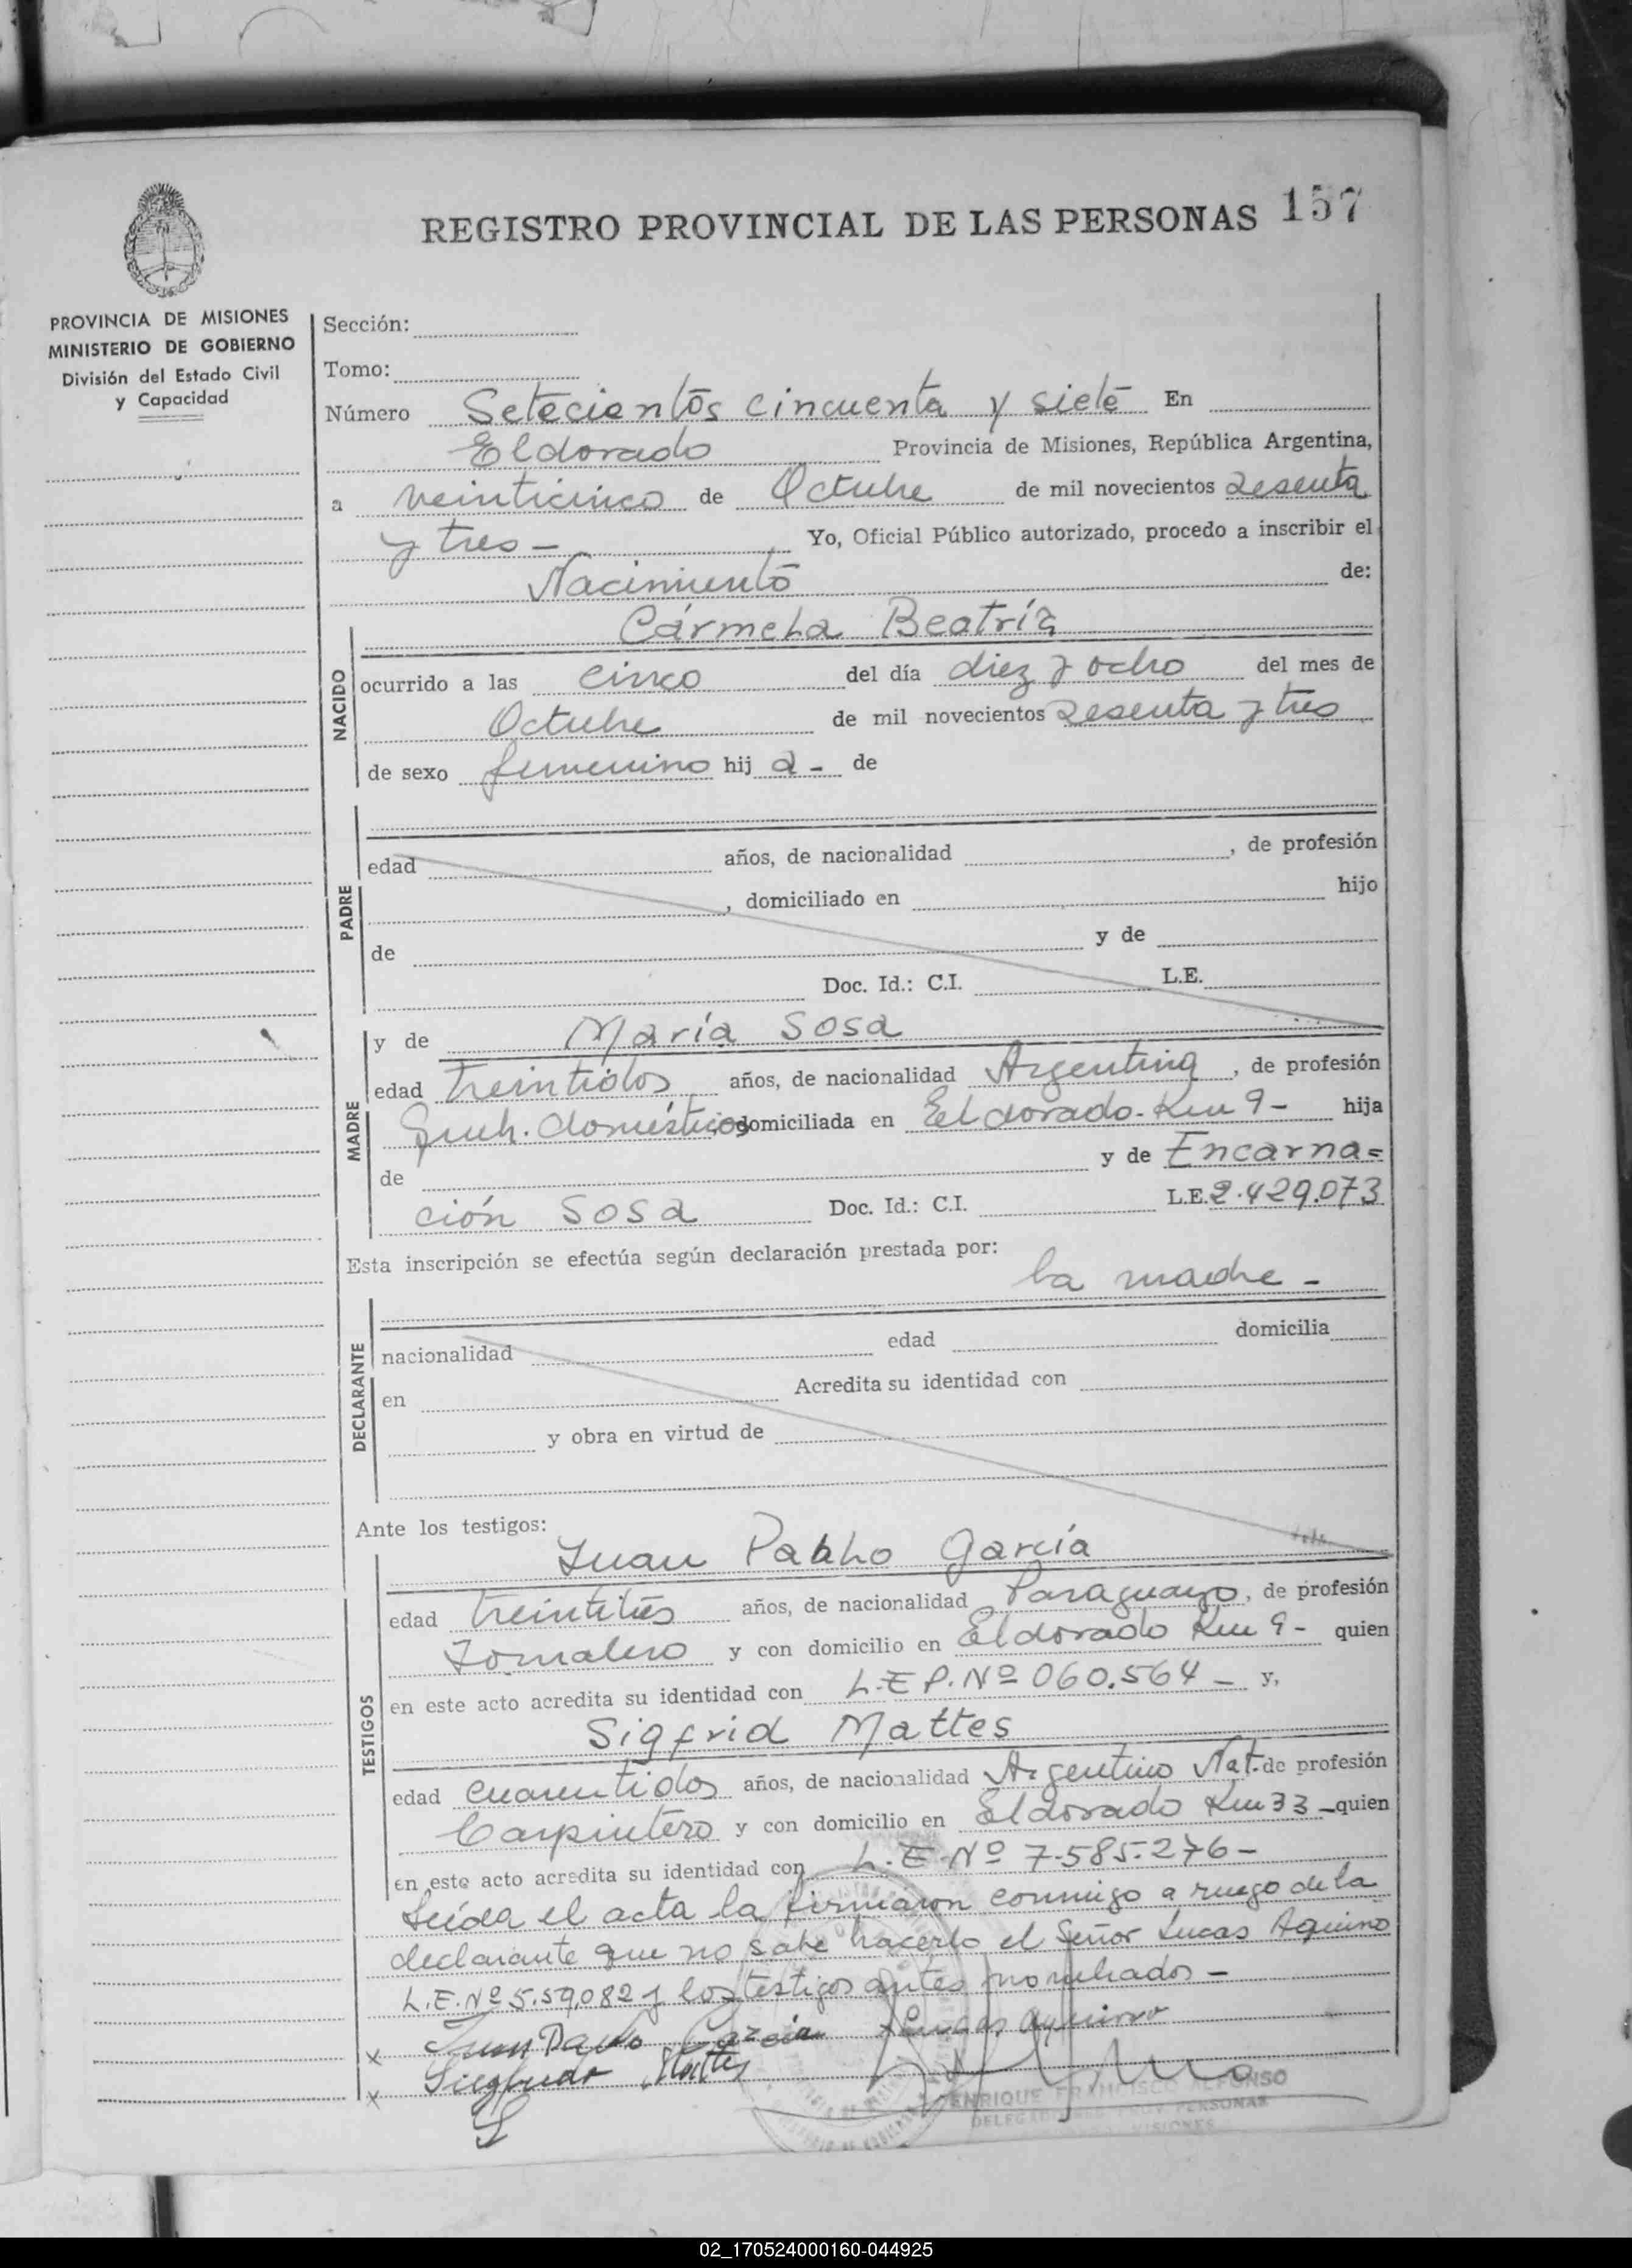 REGISTRO PROVINCIAL DE LAS PERSONAS 157
PROVINCIA DE MISIONES
MINISTERIO DE GOBIERNO
División del Estado Civil
y Capacidad
Sección:
Tomo:
Número Setecientos cincuenta y siete En
Eldorado Provincia de Misiones, República Argentina,
a veinticinco de Octubre de mil novecientos sesenta
y tres - Yo, Oficial Público autorizado, procedo a inscribir el
Nacimiento de:
NACIDO
Carmela Beatríz
ocurrido a las cinco del día diez y ocho del mes de
Octubre de mil novecientos sesenta y tres
de sexo femenino hij a - de
PADRE
edad años, de nacionalidad , de profesión
, domiciliado en hijo
de y de
Doc. Id.: C.I. L.E.
MADRE
y de María Sosa
edad treintidos años, de nacionalidad Argentina , de profesión
Queh. domésticos domiciliada en Eldorado - Km 9 - hija
de y de Encarna=
ción Sosa Doc. Id.: C.I. L.E. 2.429.073
Esta inscripción se efectúa según declaración prestada por:
la madre -
DECLARANTE
nacionalidad edad domicilia
en Acredita su identidad con
y obra en virtud de
Ante los testigos:
TESTIGOS
Juan Pablo García
edad treintitres años, de nacionalidad Paraguayo, de profesión
Jornalero y con domicilio en Eldorado Km 9 - quien
en este acto acredita su identidad con L.E P. Nº 060.564 - y,
Sigfrid Mattes
edad cuarentidos años, de nacionalidad Argentino Nat. de profesión
Carpintero y con domicilio en Eldorado Km 33 - quien
en este acto acredita su identidad con L.E. Nº 7.585.276 -
Leída el acta la firmaron conmigo a ruego de la
declarante que no sabe hacerlo el Señor Lucas Aquino
L.E. Nº 5.59.082 y los testigos antes nombrados -
x Juan Pablo Garcia Lucas Aquino
x Siegfrido Mattes
ENRIQUE FRANCISCO ALFONSO
PROV. PERSONAS
MISIONES
02_170524000160-044925